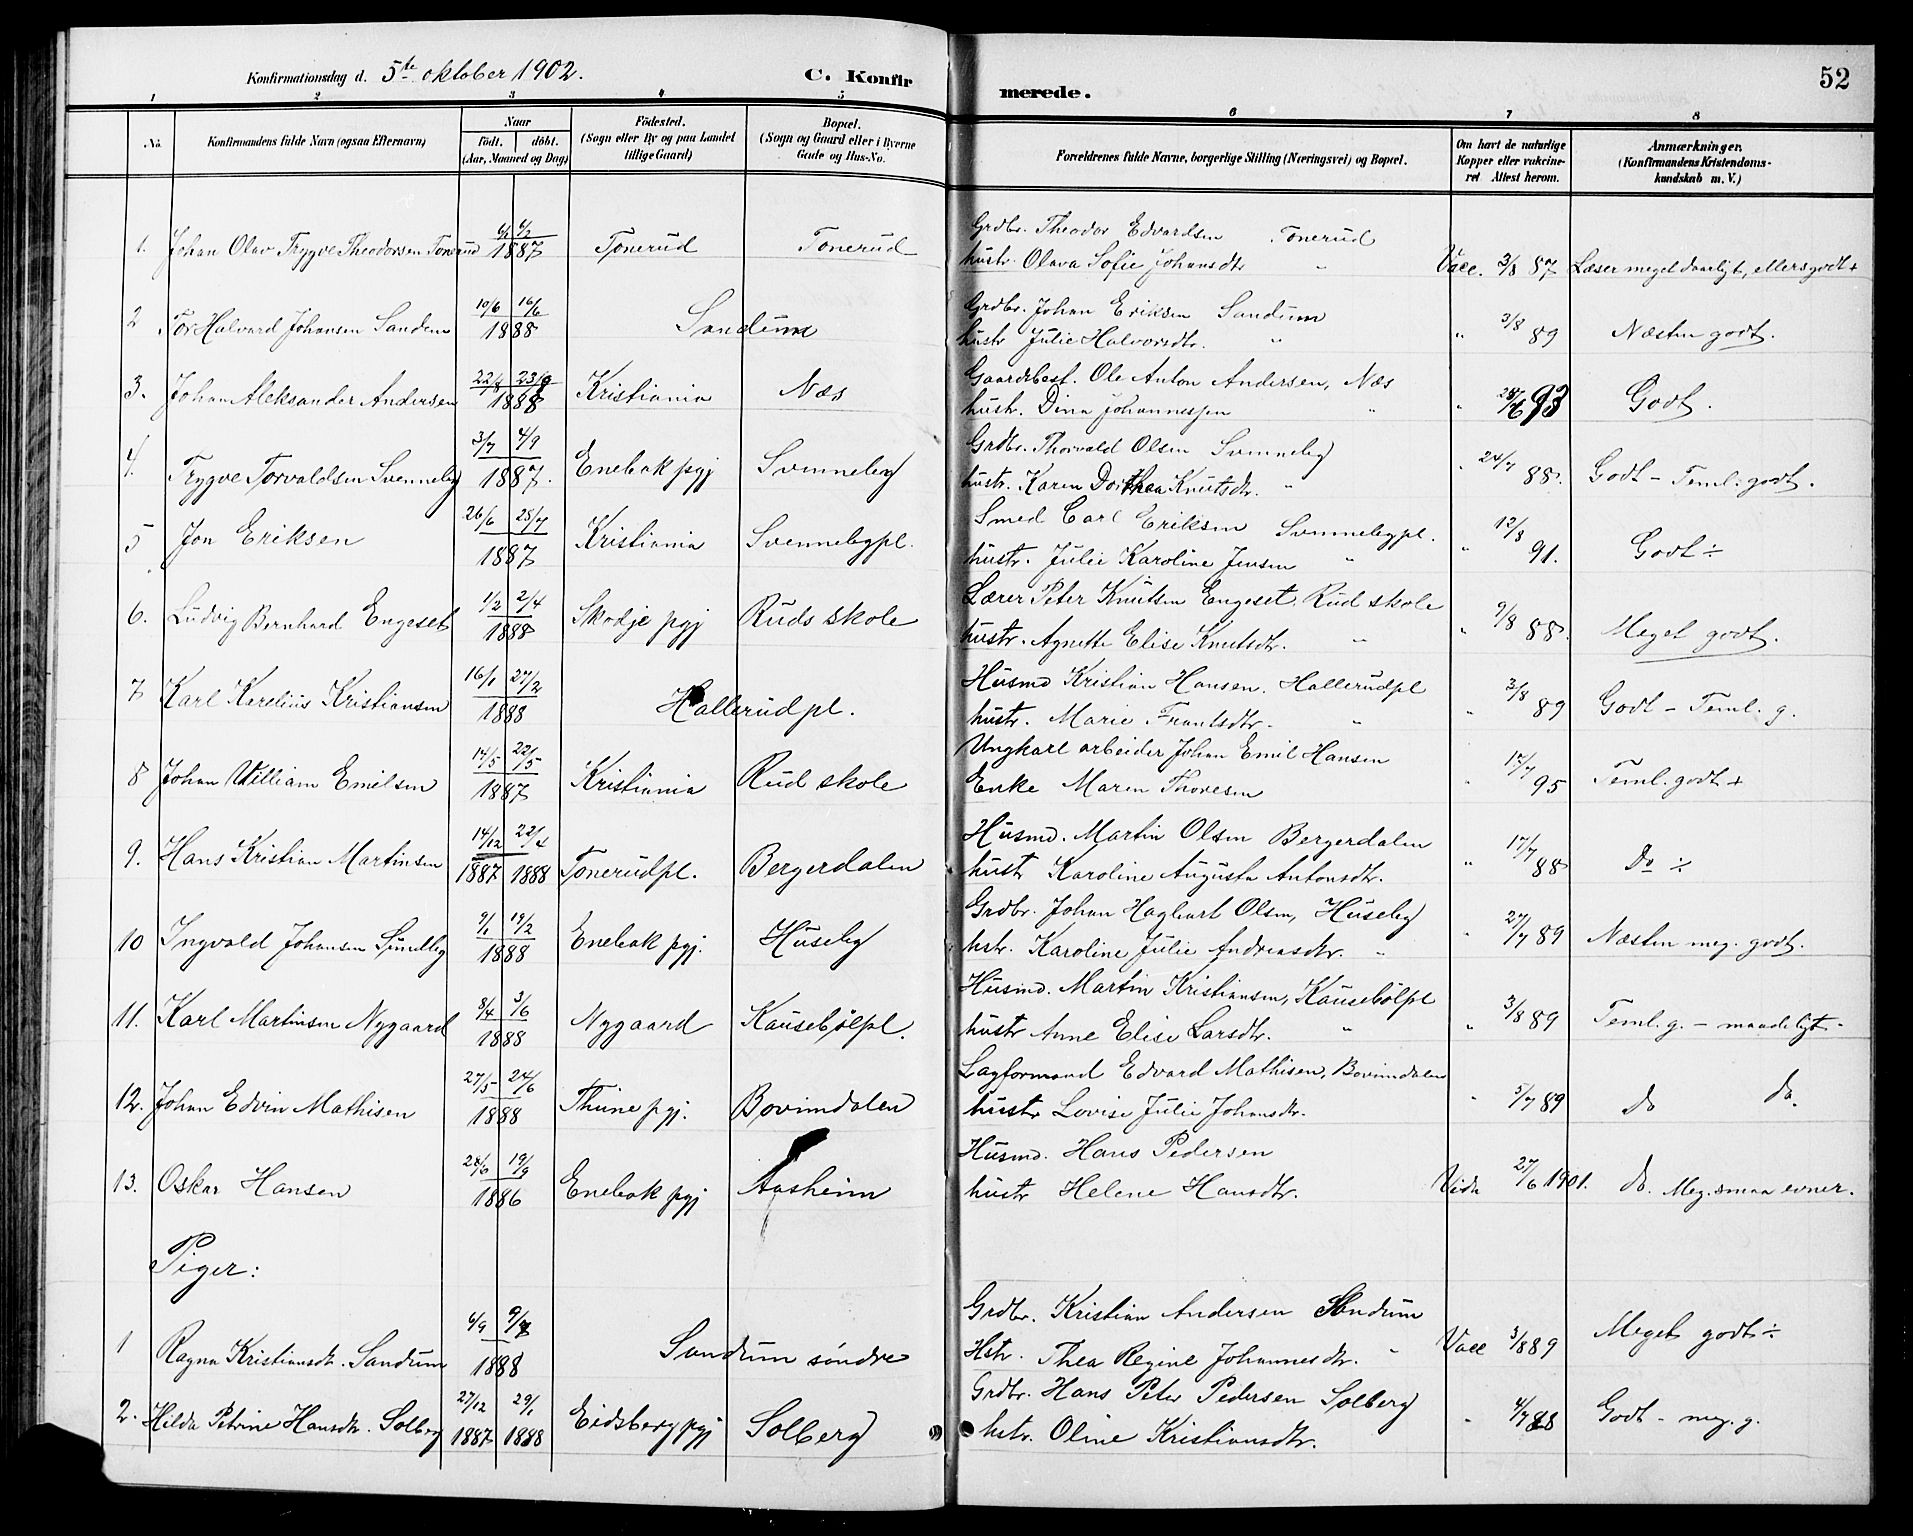 Konfirmationsdag d. 5te oktober 1902. C. Konfirmerede. 52
1 2 3 4 5 6 7 8
No. Konfirmandens fulde Navn (ogsaa Efternavn) Naar födt. döbt. (Aar, Maaned og Dag) Födested. (Sogn eller By og paa Landet tillige Gaard) Bopæl. (Sogn og Gaard eller i Byerne Gade og Hus-No. Forældrenes fulde Navne, borgerlige Stilling (Næringsvei) og Bopæl. Om havt de naturlige Kopper eller vakcineret Attest herom. Anmærkninger. (Konfirmandens Kristendomskundskab m. V.)
1. Johan Olav Trygve Theodorsen Tonerud 1887 Tonerud Tonerud Grdbr. Theodor Edvardsen Tonerud
hustr. Olava Sofie Johansdtr " Vacc. 3/8 87 Læser meget daarligt, ellers godt +
2 Tor Halvard Johansen Sandem 10/6 16/6 1888 Sandum Grdbr. Johan Eriksen Sandum
hustr Julie Halvorsdtr. " " 3/8 89 Næsten godt.
3. Johan Aleksander Andersen 22/8 23/9 1888 Kristiania Næs Gaardsbest. Ole Anton Andersen, Næs
hustr. Dina Johannessen " " 93 Godt.
4. Trygve Torvaldsen Svenneby 3/7 4/9 1887. Enebak pgj Svenneby Grdbr. Thorvald Olsen Svenneby
hustr. Karen Dorthea Knutsdtr. " " 24/7 88. Godt - Teml. godt.
5 Jon Eriksen 26/6 28/7 1887 Kristiania Svennebypl. Smed Carl Eriksen Svennebypl.
hustr. Julie Karoline Jensen " " 12/8 91. Godt ÷
6. Ludvig Bernhard Engeset 1/2 2/4 1888 Skodje pgj Ruds skole Lærer Peter Knutsen Engeset. Rud skole
hustr. Agnette Elise Knutsdtr. " " 9/8 88. Meget godt.
7 Karl Karelius Kristiansen 16/1 27/2 1888 Hallerudpl. Husmd Kristian Hansen. Hallerudpl
hustr. Marie Frantsdtr. " " 3/8 89 Godt - Teml. g.
8 Johan William Emilsen 14/5 22/5 1887 Kristiania Rud skole Ungkarl arbeider Johan Emil Hansen
Enke Maren Thoresen " 12/7 95 Teml. godt +
9. Hans Kristian Martinsen 14/12 22/4 1887 1888 Tonerudpl. Bergerdalen Husmd. Martin Olsen Bergerdalen
hustr Karoline Augusta Antonsdtr. " 17/7 88 Do ÷
10 Ingvald Johansen Sundby 9/1 19/2 1888 Enebak pgj. Huseby Grdbr. Johan Hagbart Olsen, Huseby
hstr. Karoline Julie Andreasdtr. " " 27/7 89 Næsten meg. godt.
11. Karl Martinsen Nygaard 8/4 3/6 1888 Nygaard Kausebölpl. Husmd. Martin Kristiansen, Kausebölpl
hustr Anne Elise Larsdtr. " " 3/8 89 Teml. g. - maadeligt -
12. Johan Edvin Mathisen 27/5 24/6 1888 Thune pgj. Bovimdalen Lagformand Edvard Mathisen, Bovimdalen
hustr Lovise Julie Johansdtr. " 5/7 89 do do.
13. Oskar Hansen 28/6 19/9 1886 Enebak pgj Aasheim Husmd. Hans Pedersen
hustr Helene Hansdtr. Vidn 27/6 1901. do. Meg. smaa evner.
Piger:
1 Ragna Kristiansdt. Sandum 1888 Sandum söndre Grdbr. Kristian Andersen Sandum
Hstr. Thea Regine Johannesdtr. " Vacc 3/8 89 Meget godt ÷
2. Hilda Petrine Hansdtr. Solberg 27/12 29/1 1887 1888 Eidsberg pgj Solberg Grdbr. Hans Peter Pedersen Solberg
hstr. Oline Kristiansdtr. " 4/7 88 Godt - meg. g.